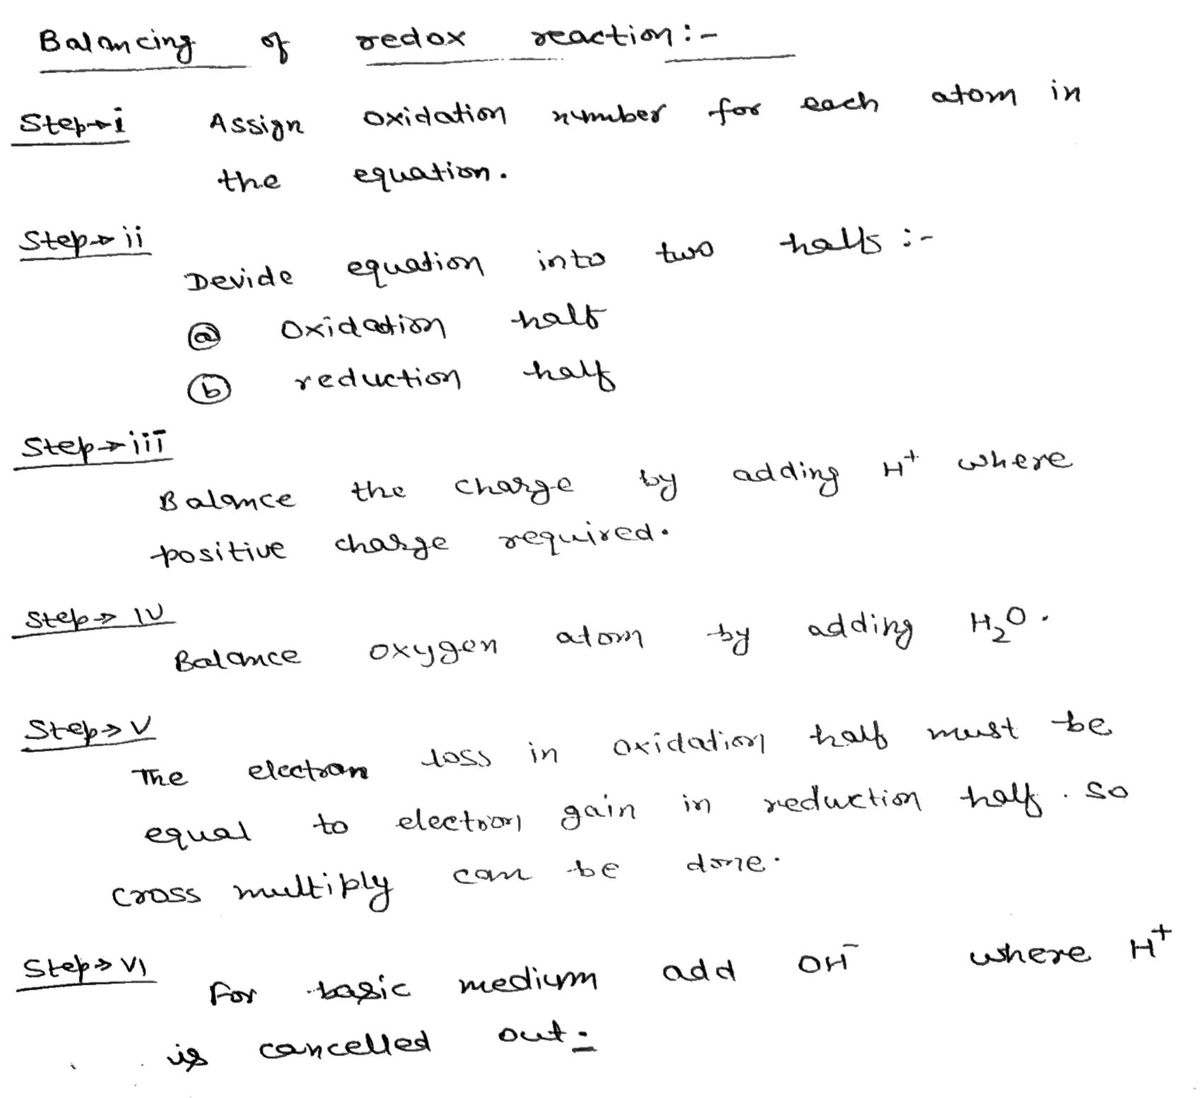 Balancing of redox reaction:-
Step→i Assign oxidation number for each atom in
the equation.
Step→ii
Devide equation into two halfs:-
ⓐ Oxidation half
ⓑ reduction half
Step→iii
Balance the charge by adding H⁺ where
positive charge required.
Step→IV
Balance oxygen atom by adding H₂O.
Step→V
The electron loss in oxidation half must be
equal to electron gain in reduction half. so
cross multiply can be done.
Step→VI
For basic medium add OH⁻ where H⁺
is cancelled out: